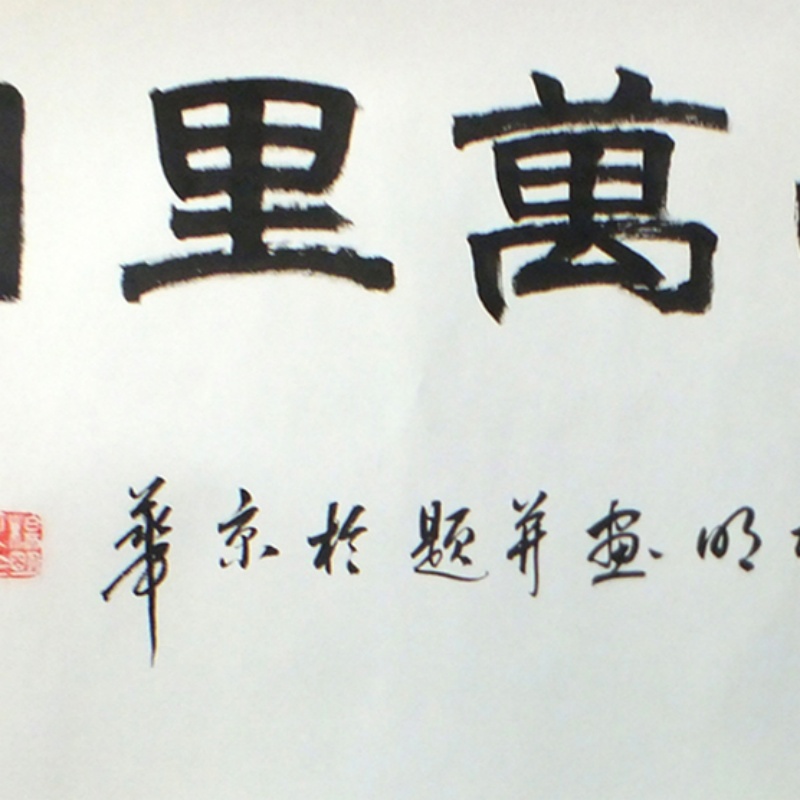 萬里
明畫并題於京華